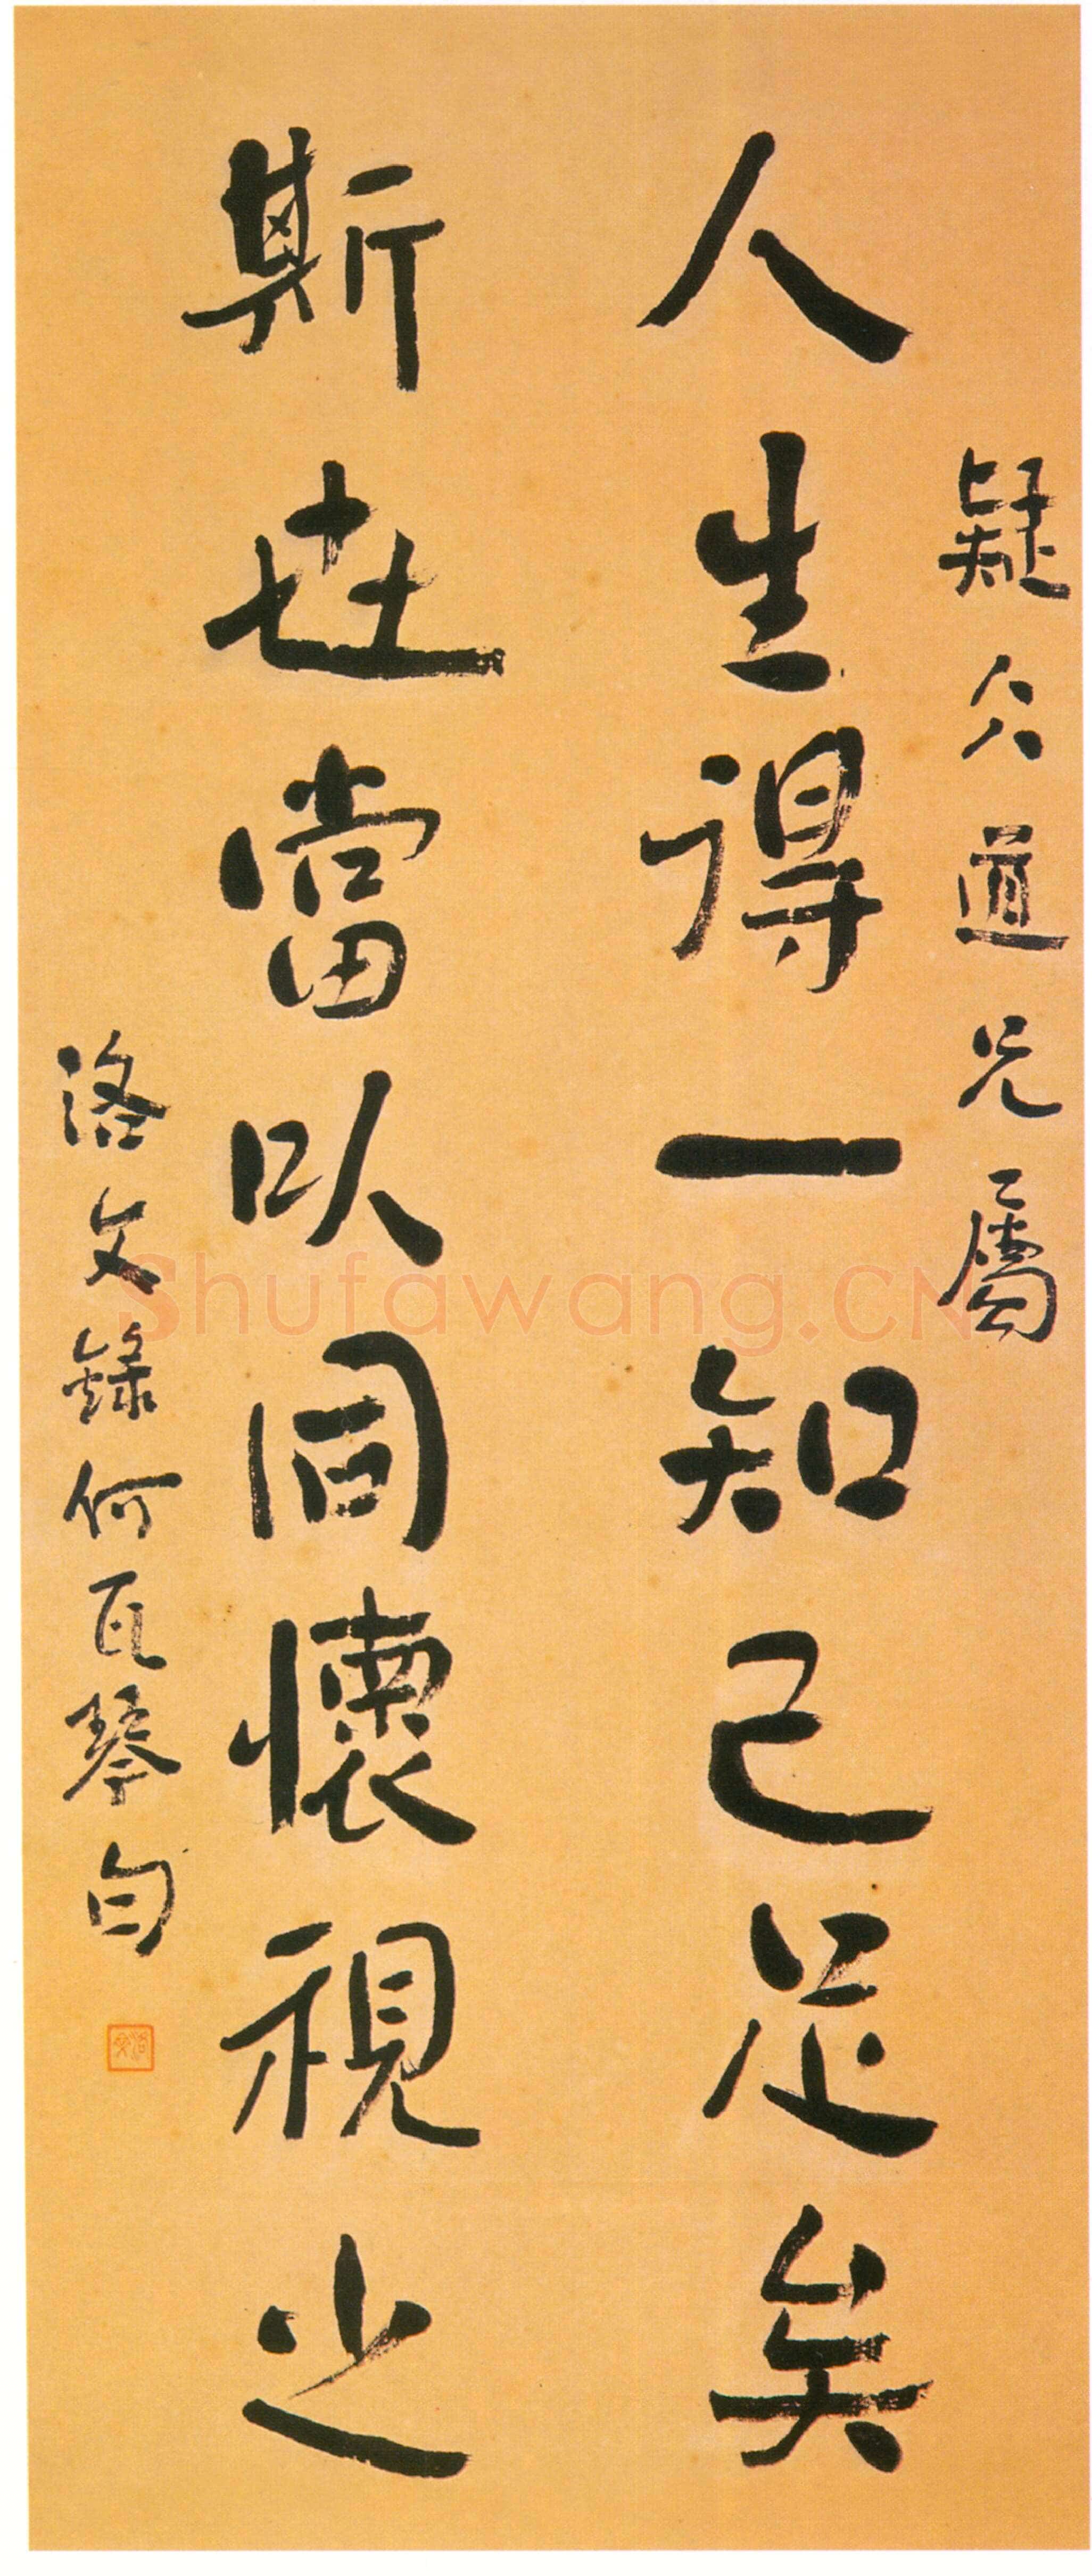 疑仌道兄屬
人生得一知己足矣
斯世當以同懷視之
洛文錄何瓦琴句
洛文
Shufawang.CN